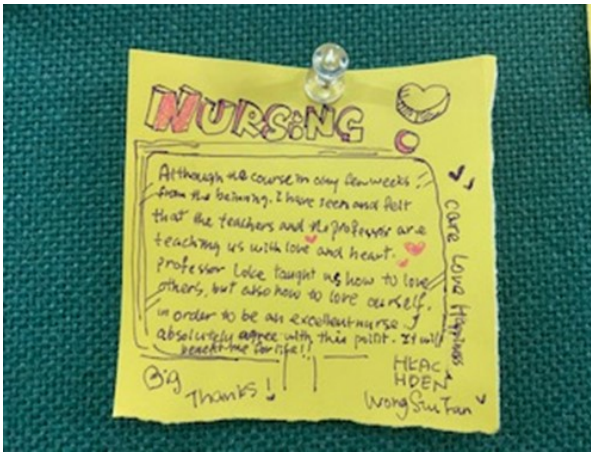 NURSING
Although the course in only few weeks
from the beinning. I have seen and felt
that the teachers and the professor are
teaching us with love and heart.
professor Loke taught us how to love
others, but also how to love ourself.
in order to be an excellent nurse. I
absolutely agree with this point. It will
benefit me for life!!
Big
Thanks!
care Love Happiness
HKAC
HDEN
Wong